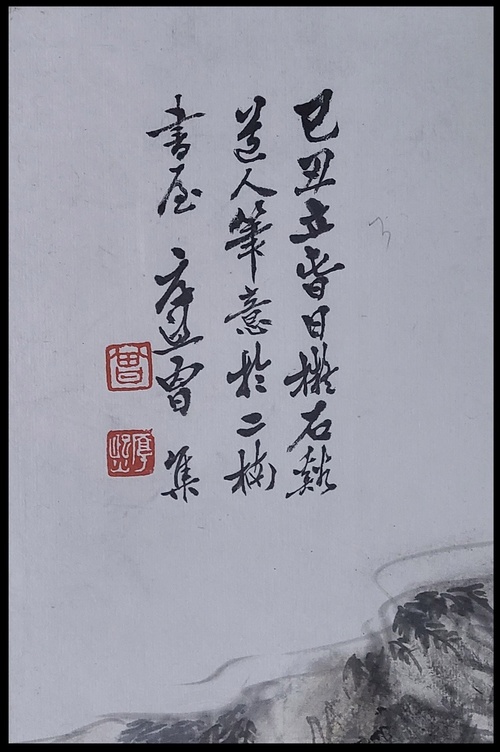 己丑立春日橅石谿
道人筆意於二楠
書屋 曾 集
曾
厚熙